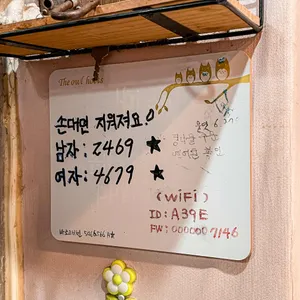 The owl home
손대면 지워져요
남자: 2469 ★
여자: 4679 ★
(WiFi)
ID: A39E
PW: 000000 7146